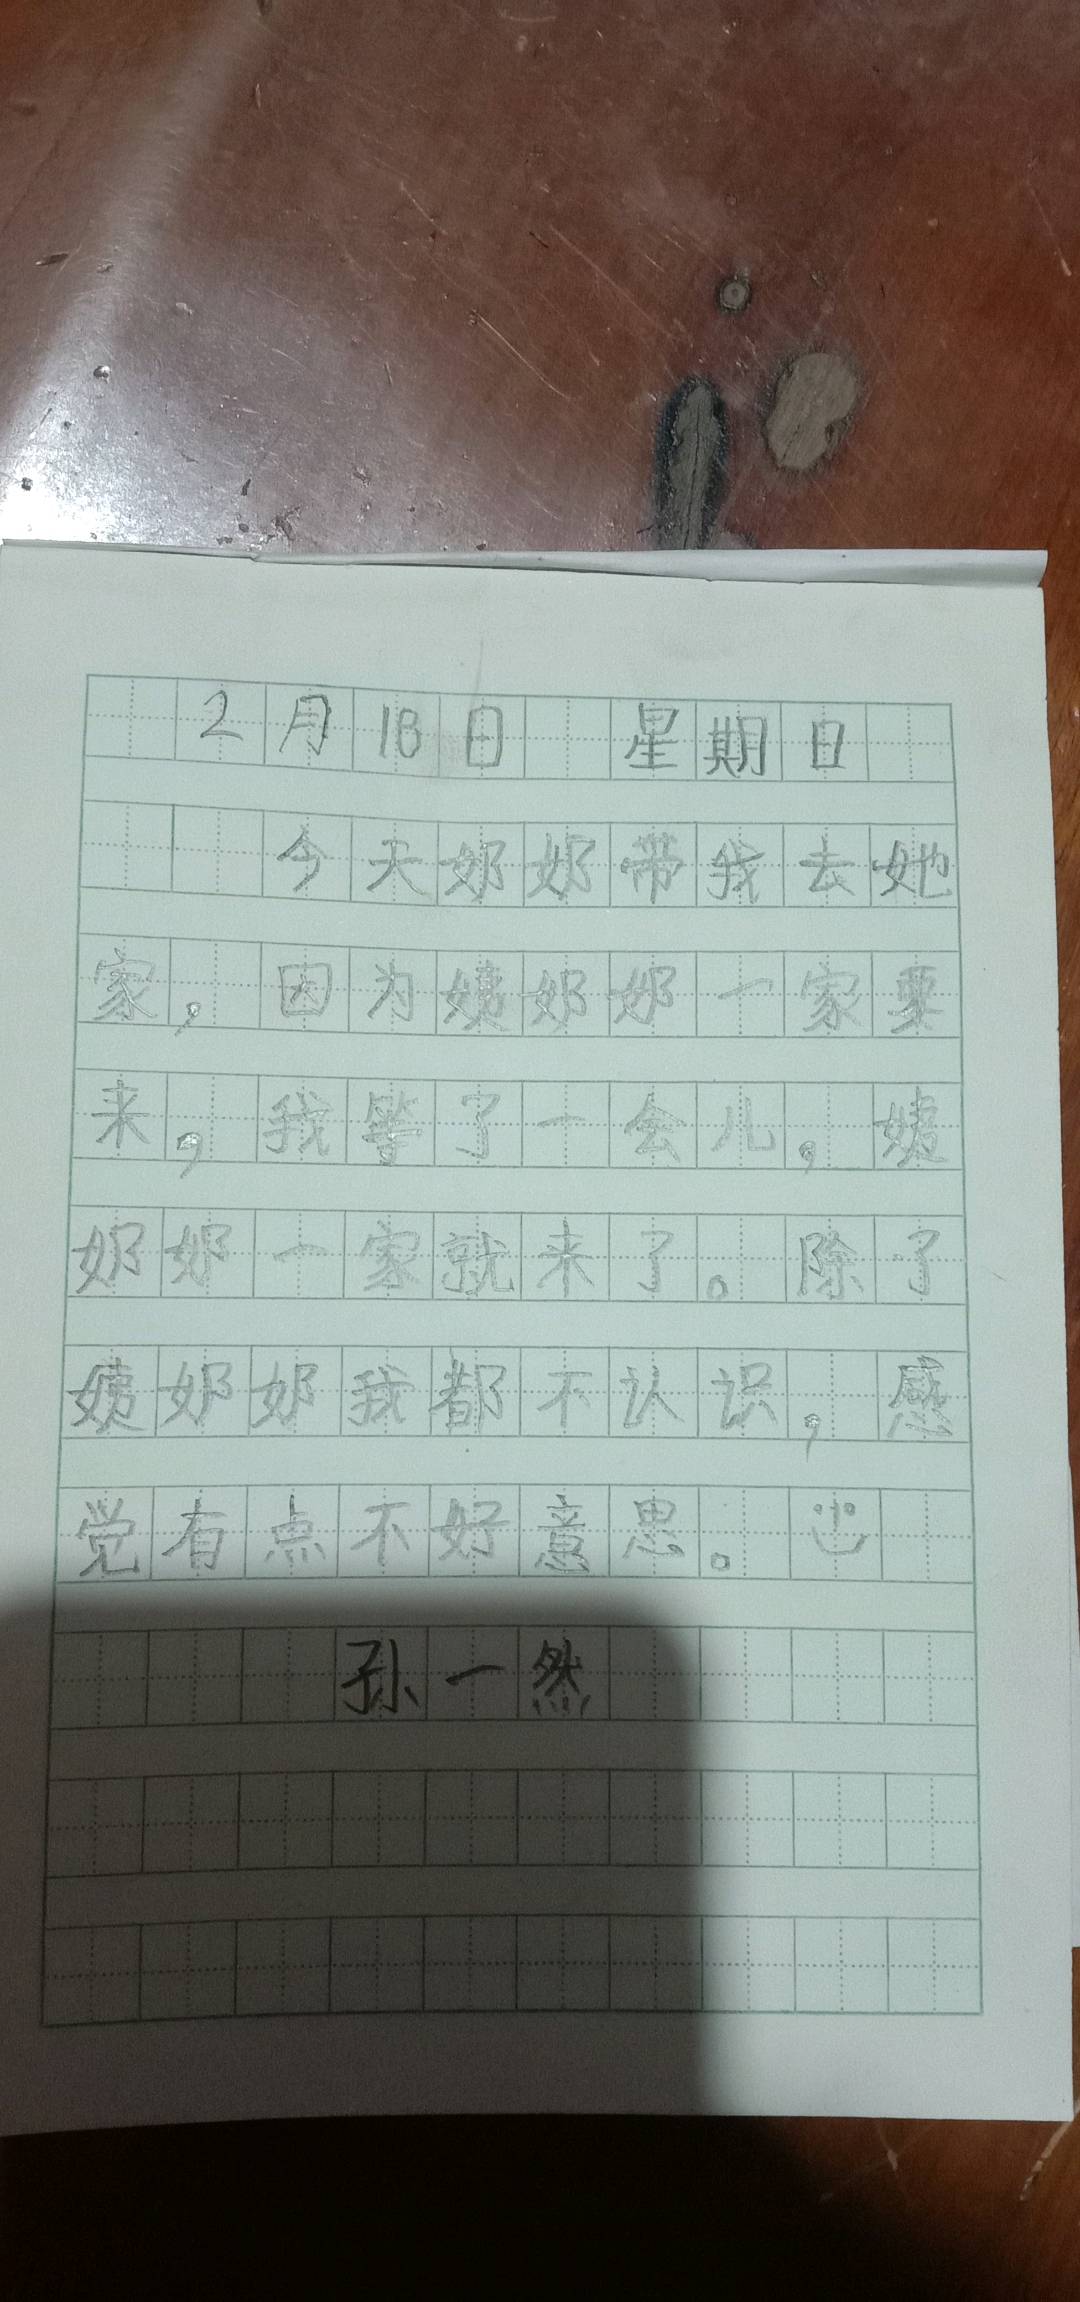 2月18日 星期日
今天奶奶带我去她
家，因为姨奶奶一家要
来，我等了一会儿，姨
奶奶一家就来了。除了
姨奶奶我都不认识，感
觉有点不好意思。
孙一然